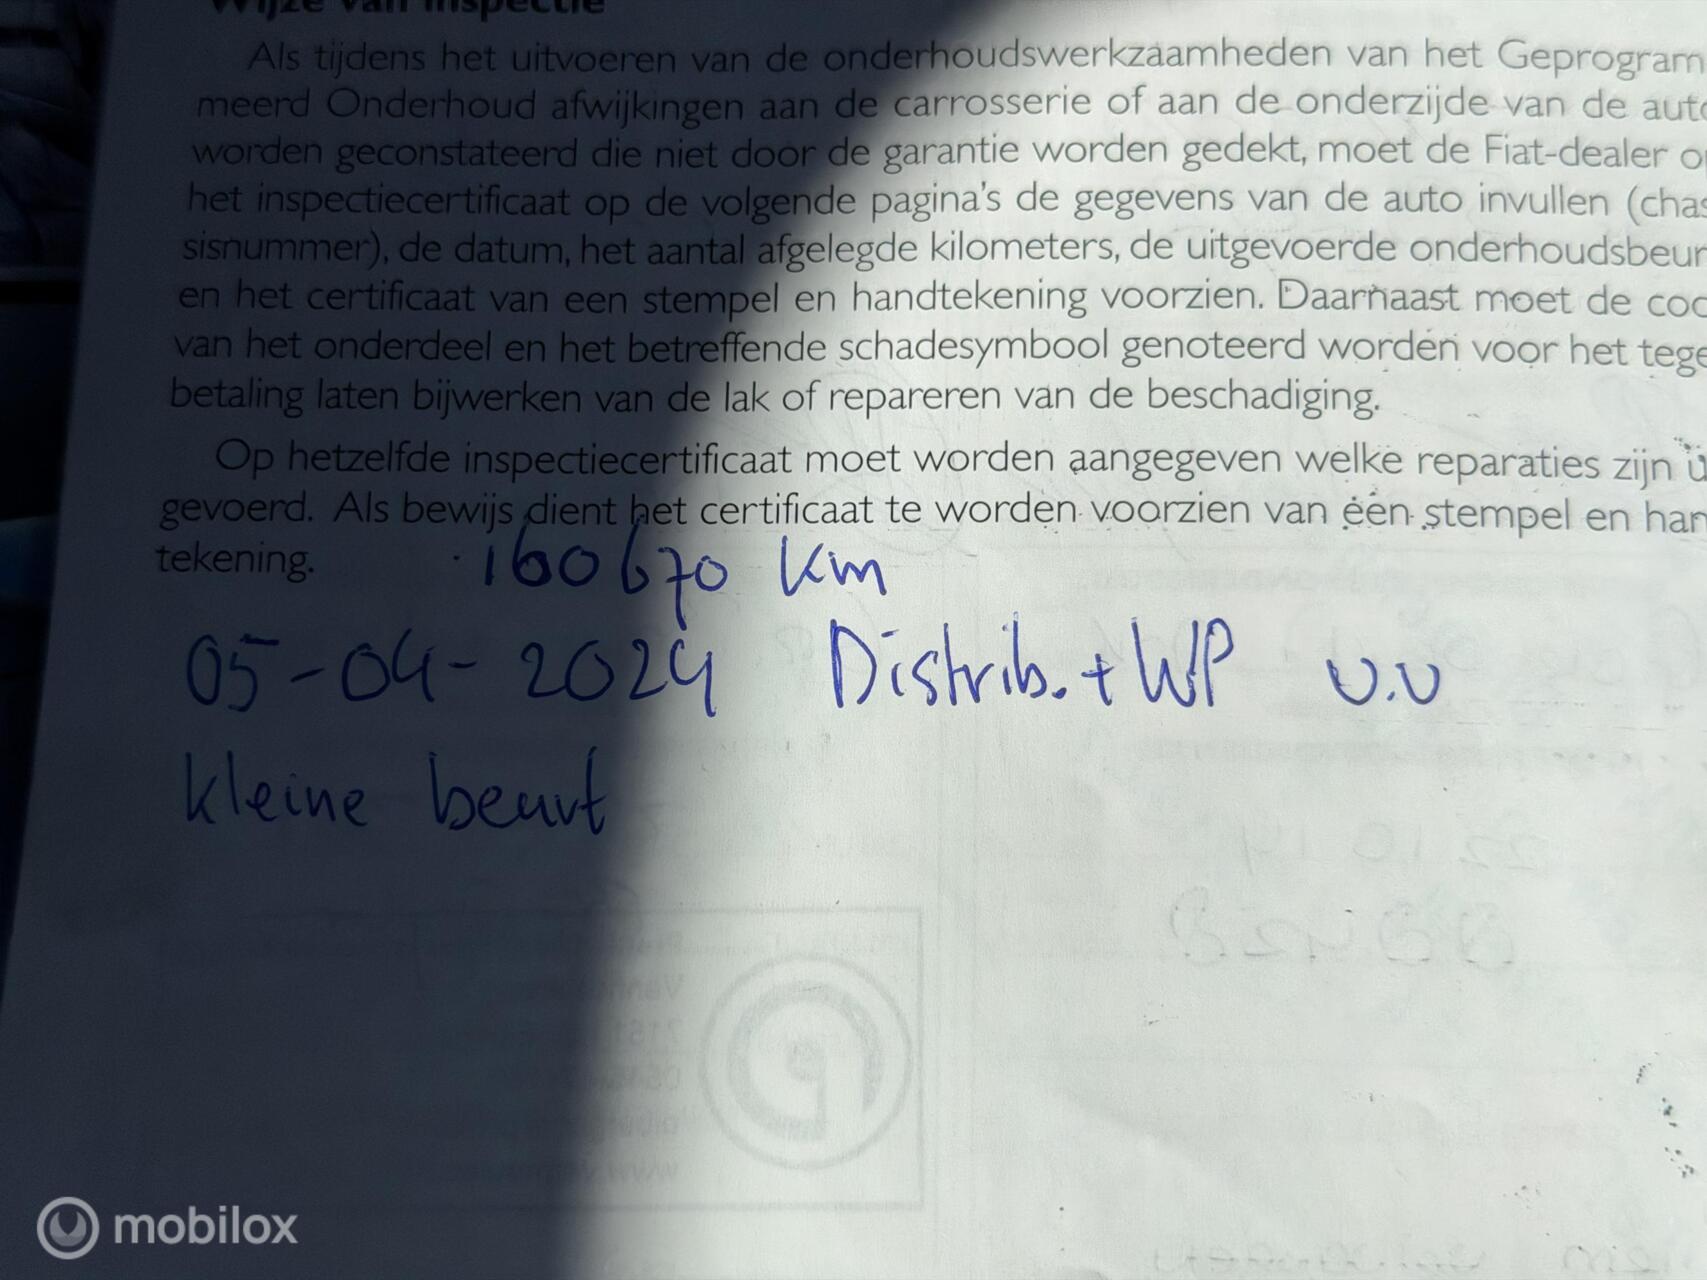 Wijze van inspectie
Als tijdens het uitvoeren van de onderhoudswerkzaamheden van het Geprogram
meerd Onderhoud afwijkingen aan de carrosserie of aan de onderzijde van de auto
worden geconstateerd die niet door de garantie worden gedekt, moet de Fiat-dealer o
het inspectiecertificaat op de volgende pagina's de gegevens van de auto invullen (chas
sisnummer), de datum, het aantal afgelegde kilometers, de uitgevoerde onderhoudsbeur
en het certificaat van een stempel en handtekening voorzien. Daarnaast moet de cod
van het onderdeel en het betreffende schadesymbool genoteerd worden voor het tege
betaling laten bijwerken van de lak of repareren van de beschadiging.
Op hetzelfde inspectiecertificaat moet worden aangegeven welke reparaties zijn u
gevoerd. Als bewijs dient het certificaat te worden voorzien van één stempel en han
tekening.
160670 km
05-04-2024 Distrib. + WP v.v
kleine beurt
mobilox